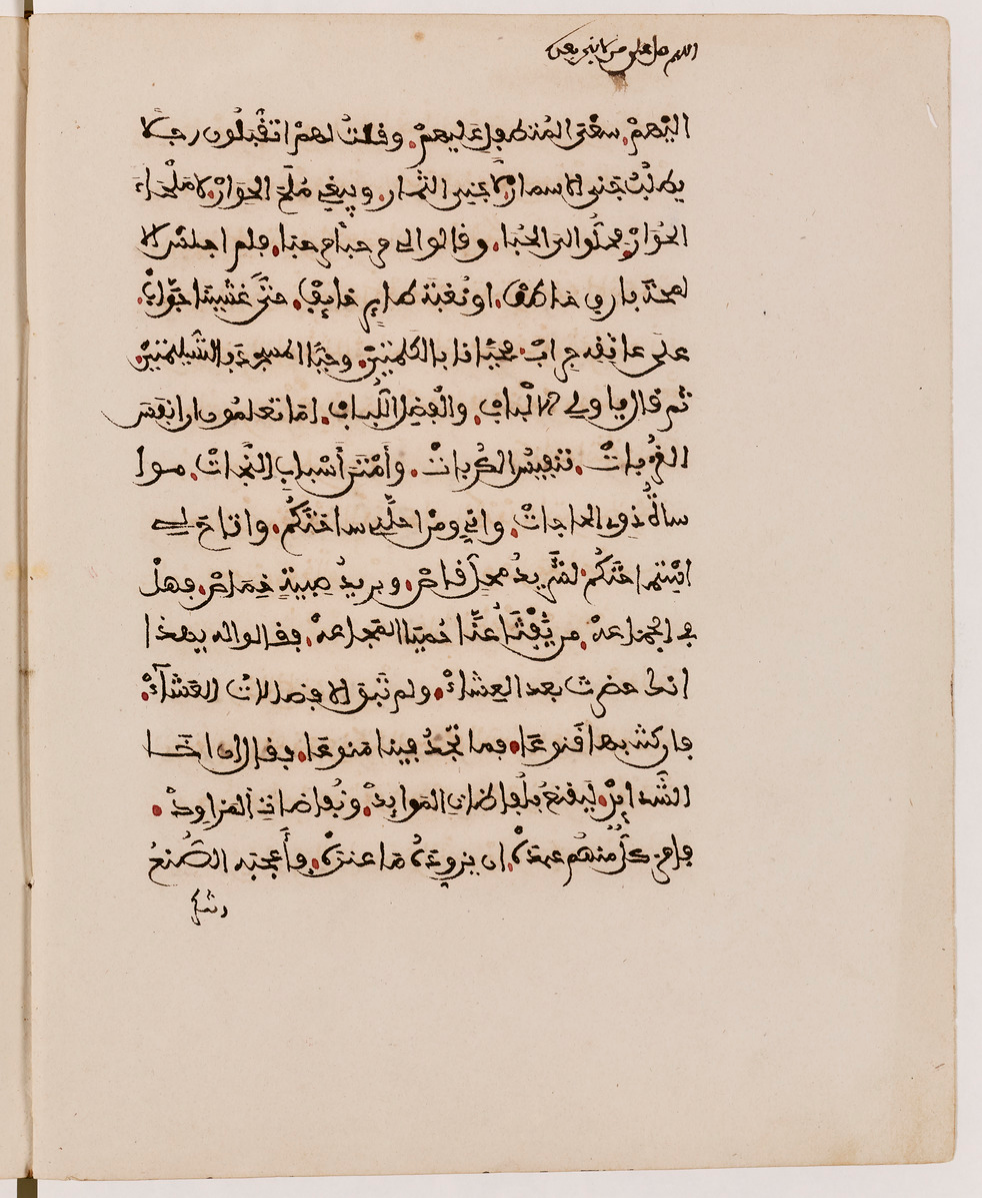 اللهم صل على من لا نبي بعده
اليْهمْ. سعْىَ المُتطفِل عَليهمْ. وقلتُ لهمْ اتقْبَلُون رجلا
يطلبُ جنى الاسمار. لا جنى الثمار. ويبغي مُلَحَ الحَوارْ. لا مَلْحَاءَ
الحُوَارْ. فحلُّوا لىَ الحُبا. وقالوا لى مرحبا مرحبا. فلم اجلسْ الا
لمحةَ بارقٍ خاطفٍ. او نُغبَة طايرٍ خايِفٍ. حتىَ غشيَنا جوَّابْ.
على عاتِقه جرابْ. فحيَّانا بالكلمتيْن. وحيَّا المسجدَ بالتسليمتيْن.
ثم قال ياولى الالْبابِ. والْفضْلِ اللُّبابِ. امَا تعلمُون ان انفَسَ
القُرُباتْ. تنفيسُ الكُرباتْ. وأمْتَنَ أسْبابِ النَّجاتْ. موا
ساةُ ذوى الحاجاتْ. وانِي ومنْ احلَّنِي ساحَتَكُمْ. واتاحَ لى
اسْتِماحَتَكُم. لشَريدُ محلٍ قاصْ. وبريدُ صِبيةٍ خِمَاصْ. فهلْ
فى الجماعهْ. من يَّفْثَأُ عَنَّا حُميَّا المَجاعهْ. فقالوا له يهذا
انك حضرت بعد العِشاءْ. ولم تبق الا فضلاتُ العَشاءْ.
فان كنت بها قَنوعًا. فما تَجدُ فينا مَنوعًا. فقال ان اخَا
الشَّدايِدْ. ليقنعُ بلُفاظاتِ المَوايِدْ. ونُفاضاتِ المزاوِدْ.
فامرَ كلٌّ منهُم عبدَهْ. ان يزودَهُ مَا عندَهْ. فأعجبَه الصُّنعُ
وشكر